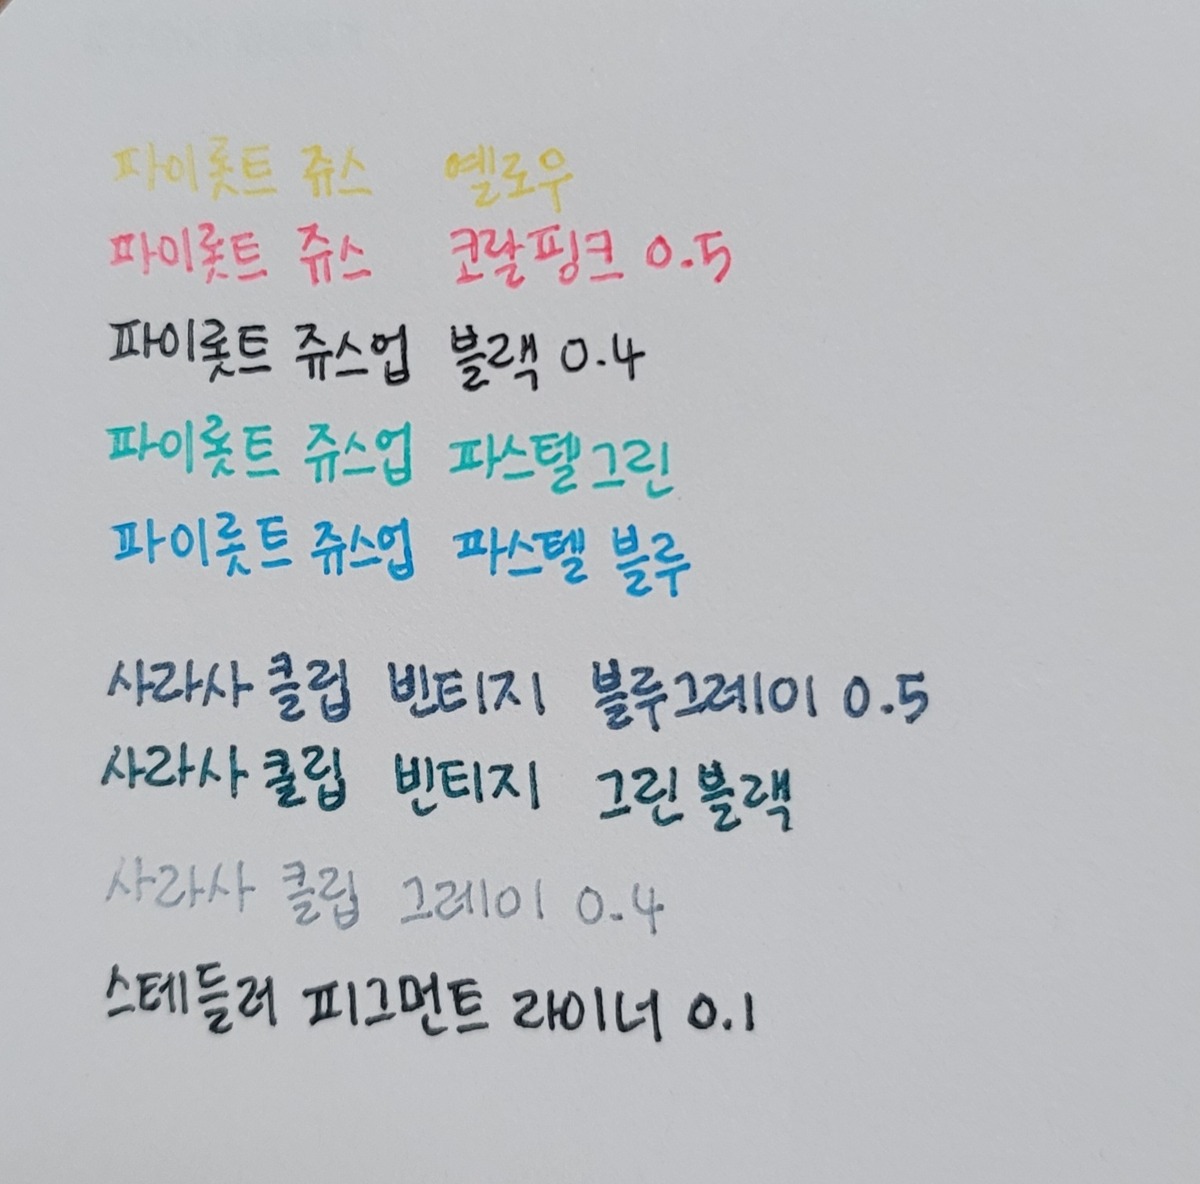 파이롯트 쥬스 옐로우
파이롯트 쥬스 코랄핑크 0.5
파이롯트 쥬스업 블랙 0.4
파이롯트 쥬스업 파스텔그린
파이롯트 쥬스업 파스텔 블루
사라사 클립 빈티지 블루그레이 0.5
사라사 클립 빈티지 그린블랙
사라사 클립 그레이 0.4
스테들러 피그먼트 라이너 0.1